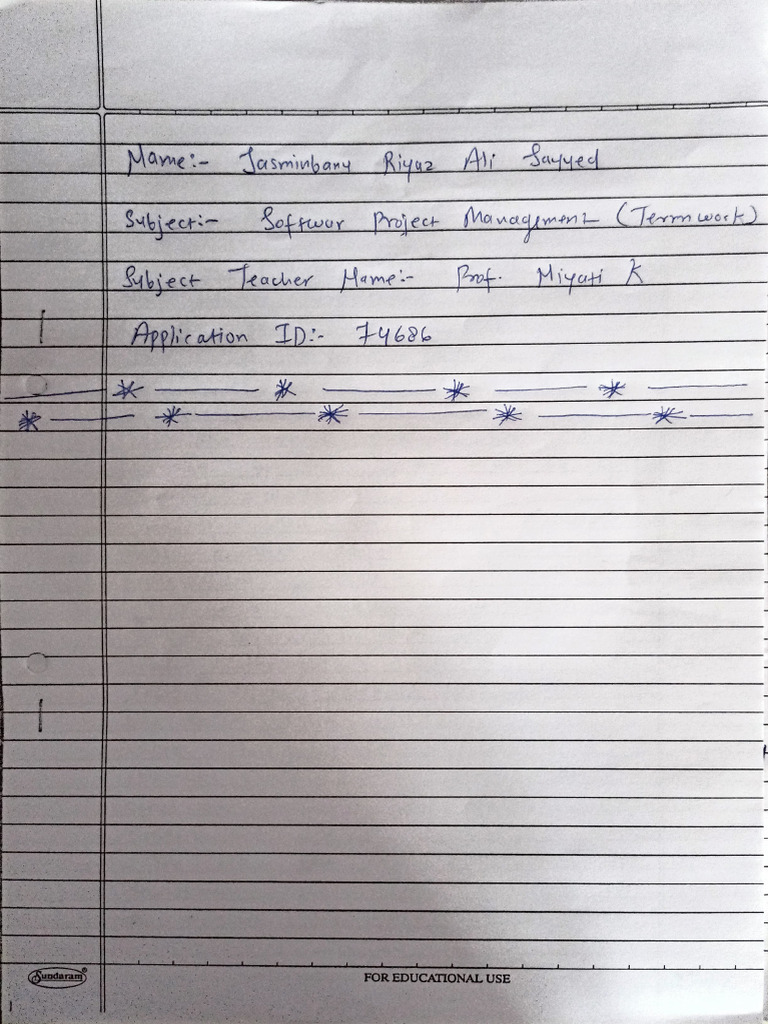 Name:- Jasminbanu Riyaz Ali Sayyed
Subject:- Softwar Project Management (Term work)
Subject Teacher Name:- Prof. Niyati K
Application ID:- 74686
Sundaram®
FOR EDUCATIONAL USE